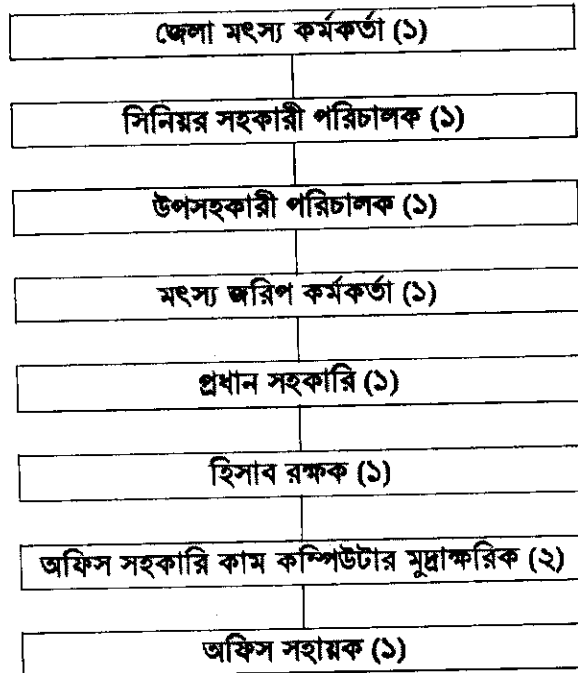 জেলা মৎস্য কর্মকর্তা (১)
সিনিয়র সহকারী পরিচালক (১)
উপসহকারী পরিচালক (১)
মৎস্য জরিপ কর্মকর্তা (১)
প্রধান সহকারি (১)
হিসাব রক্ষক (১)
অফিস সহকারি কাম কম্পিউটার মুদ্রাক্ষরিক (২)
অফিস সহায়ক (১)